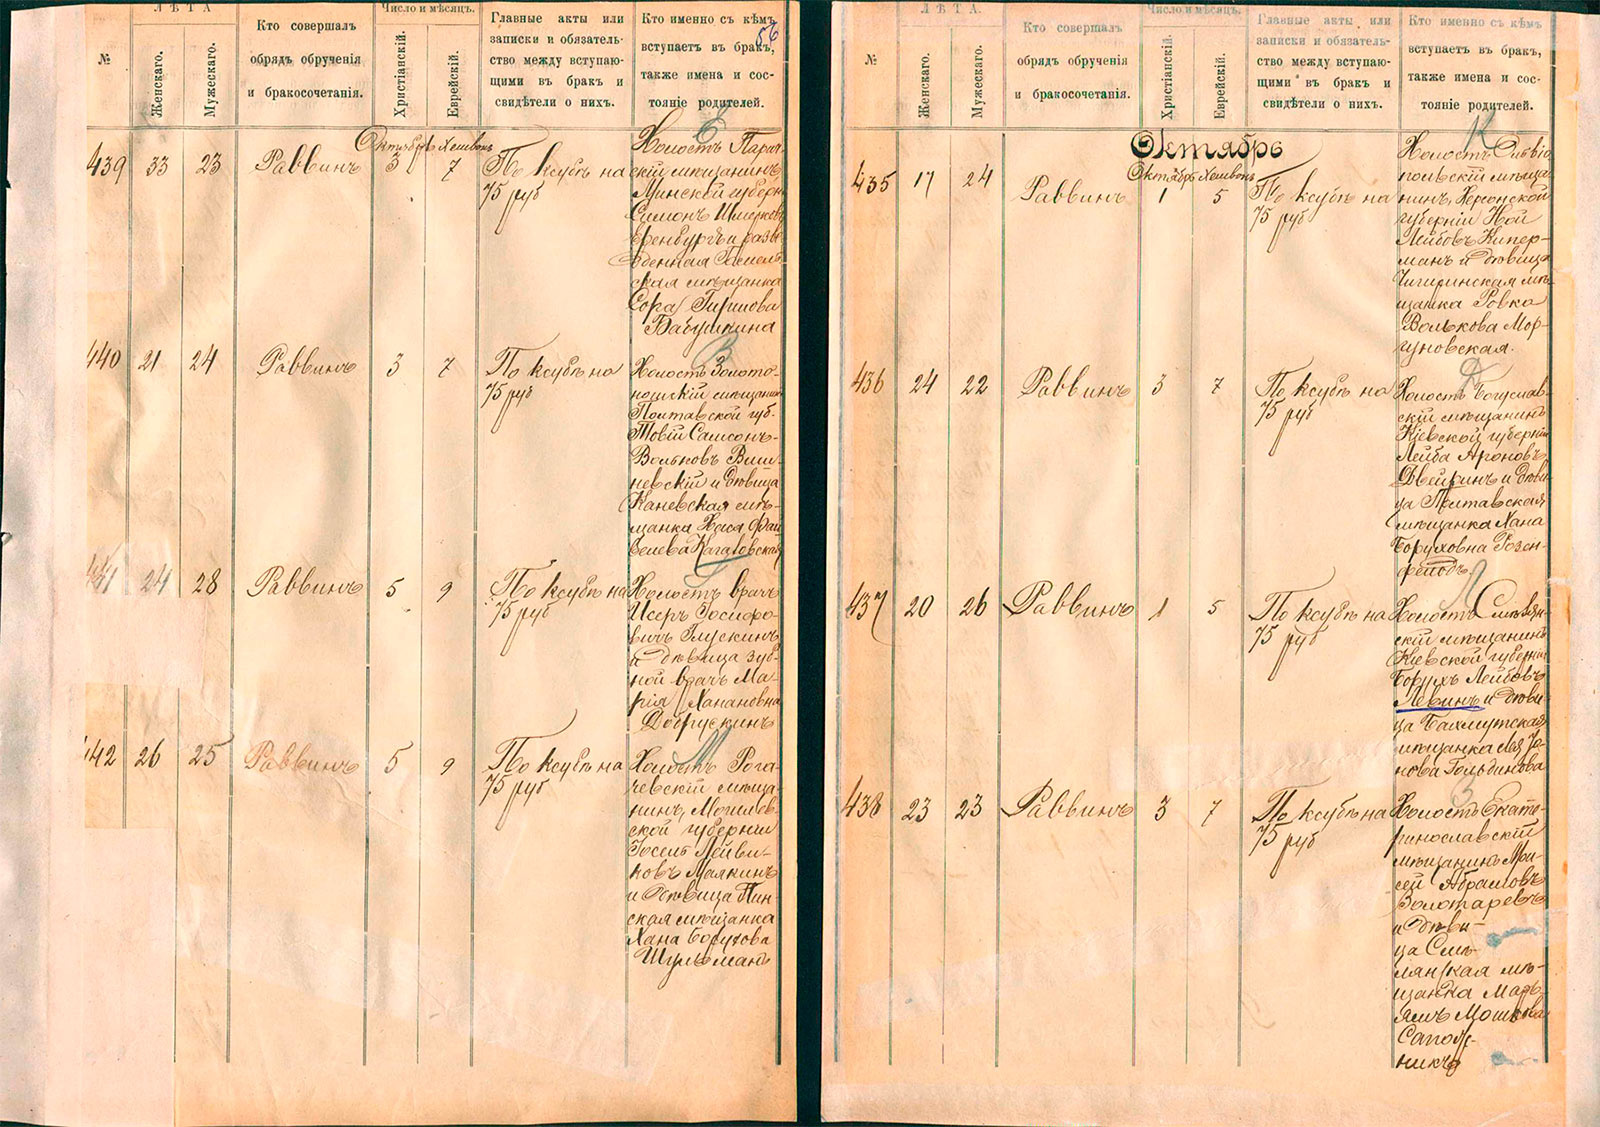 56
№
ЛѢТА
Женскаго.
Мужескаго.
Кто совершалъ
обрядъ обрученія
и бракосочетанія.
Число и мѣсяцъ.
Христіанскій.
Еврейскій.
Главные акты или
записки и обязатель-
ство между вступаю-
щими въ бракъ и
свидѣтели о нихъ.
Кто именно съ кѣмъ
вступаетъ въ бракъ,
также имена и сос-
тояніе родителей.
Октябрь Хешвонъ
439 33 23 Раввинъ 3 7 По ксубѣ на
75 руб
Е
Холостъ Парич-
скій мѣщанинъ
Минской губерн
Симонъ Шмерков
Еренбургъ и разве-
денная Гомель-
ская мѣщанка
Сора Гиршова
Бабушкина
440 21 24 Раввинъ 3 7 По ксубѣ на
75 руб
В
Холостъ Золото-
ношскій мѣщанин
Полтавской губ.
Товій Самсонъ-
Вольковъ Виш-
невскій и дѣвица
Каневская мѣ-
щанка Хася Фай
велева Кагановская
441 24 28 Раввинъ 5 9 По ксубѣ на
75 руб
Г
Холостъ врачъ
Исеръ Іосифо-
вичъ Глускинъ
и дѣвица зуб-
ной врачъ Ма-
рія Ханановна
Добрускинъ
442 26 25 Раввинъ 5 9 По ксубѣ на
75 руб
М
Холостъ Рога-
чевскій мѣща
нинъ, Могилев-
ской губерніи
Іосель Лейви-
ковъ Малкинъ
и дѣвица Пин-
ская мѣщанка
Хана Борухова
Шульманъ
№
ЛѢТА.
Женскаго.
Мужескаго.
Кто совершалъ
обрядъ обрученія
и бракосочетанія.
Число и мѣсяцъ.
Христіанскій.
Еврейскій.
Главные акты или
записки и обязатель-
ство между вступаю-
щими въ бракъ и
свидѣтели о нихъ.
Кто именно съ кѣмъ
вступаетъ въ бракъ,
также имена и сос-
тояніе родителей.
Октябрь
Октябрь Хешвонъ
435 17 24 Раввинъ 1 5 По ксубѣ на
75 руб
К
Холостъ Ольвіо
польскій мѣща-
нинъ, Херсонской
губерніи Ной
Лейбовъ Кипер-
манъ и дѣвица
Чигиринская мѣ-
щанка Ровка
Волькова Мор-
гуновская.
436 24 22 Раввинъ 3 7 По ксубѣ на
75 руб
Д
Холостъ Богуслав-
скій мѣщанинъ
Кіевской губерніи
Лейба Ароновъ
Двейринъ и дѣви
ца Полтавская
мѣщанка Хана
Боруховна Розен-
фельдъ
437 20 26 Раввинъ 1 5 По ксубѣ на
75 руб
Л
Холостъ Смѣлян-
скій мѣщанинъ
Кіевской губерніи
Борухъ Лейбовъ
Левинъ и дѣви-
ца Бахмутская
мѣщанка Лея Іо-
нова Гольдинова
438 23 23 Раввинъ 3 7 По ксубѣ на
75 руб
З
Холостъ Екате-
ринославскій
мѣщанинъ Мои-
сей Абрамовъ
Золотаревъ
и дѣви-
ца Смѣ-
лянская мѣ-
щанка Марь-
ямъ Мошкова
Сапож-
никъ